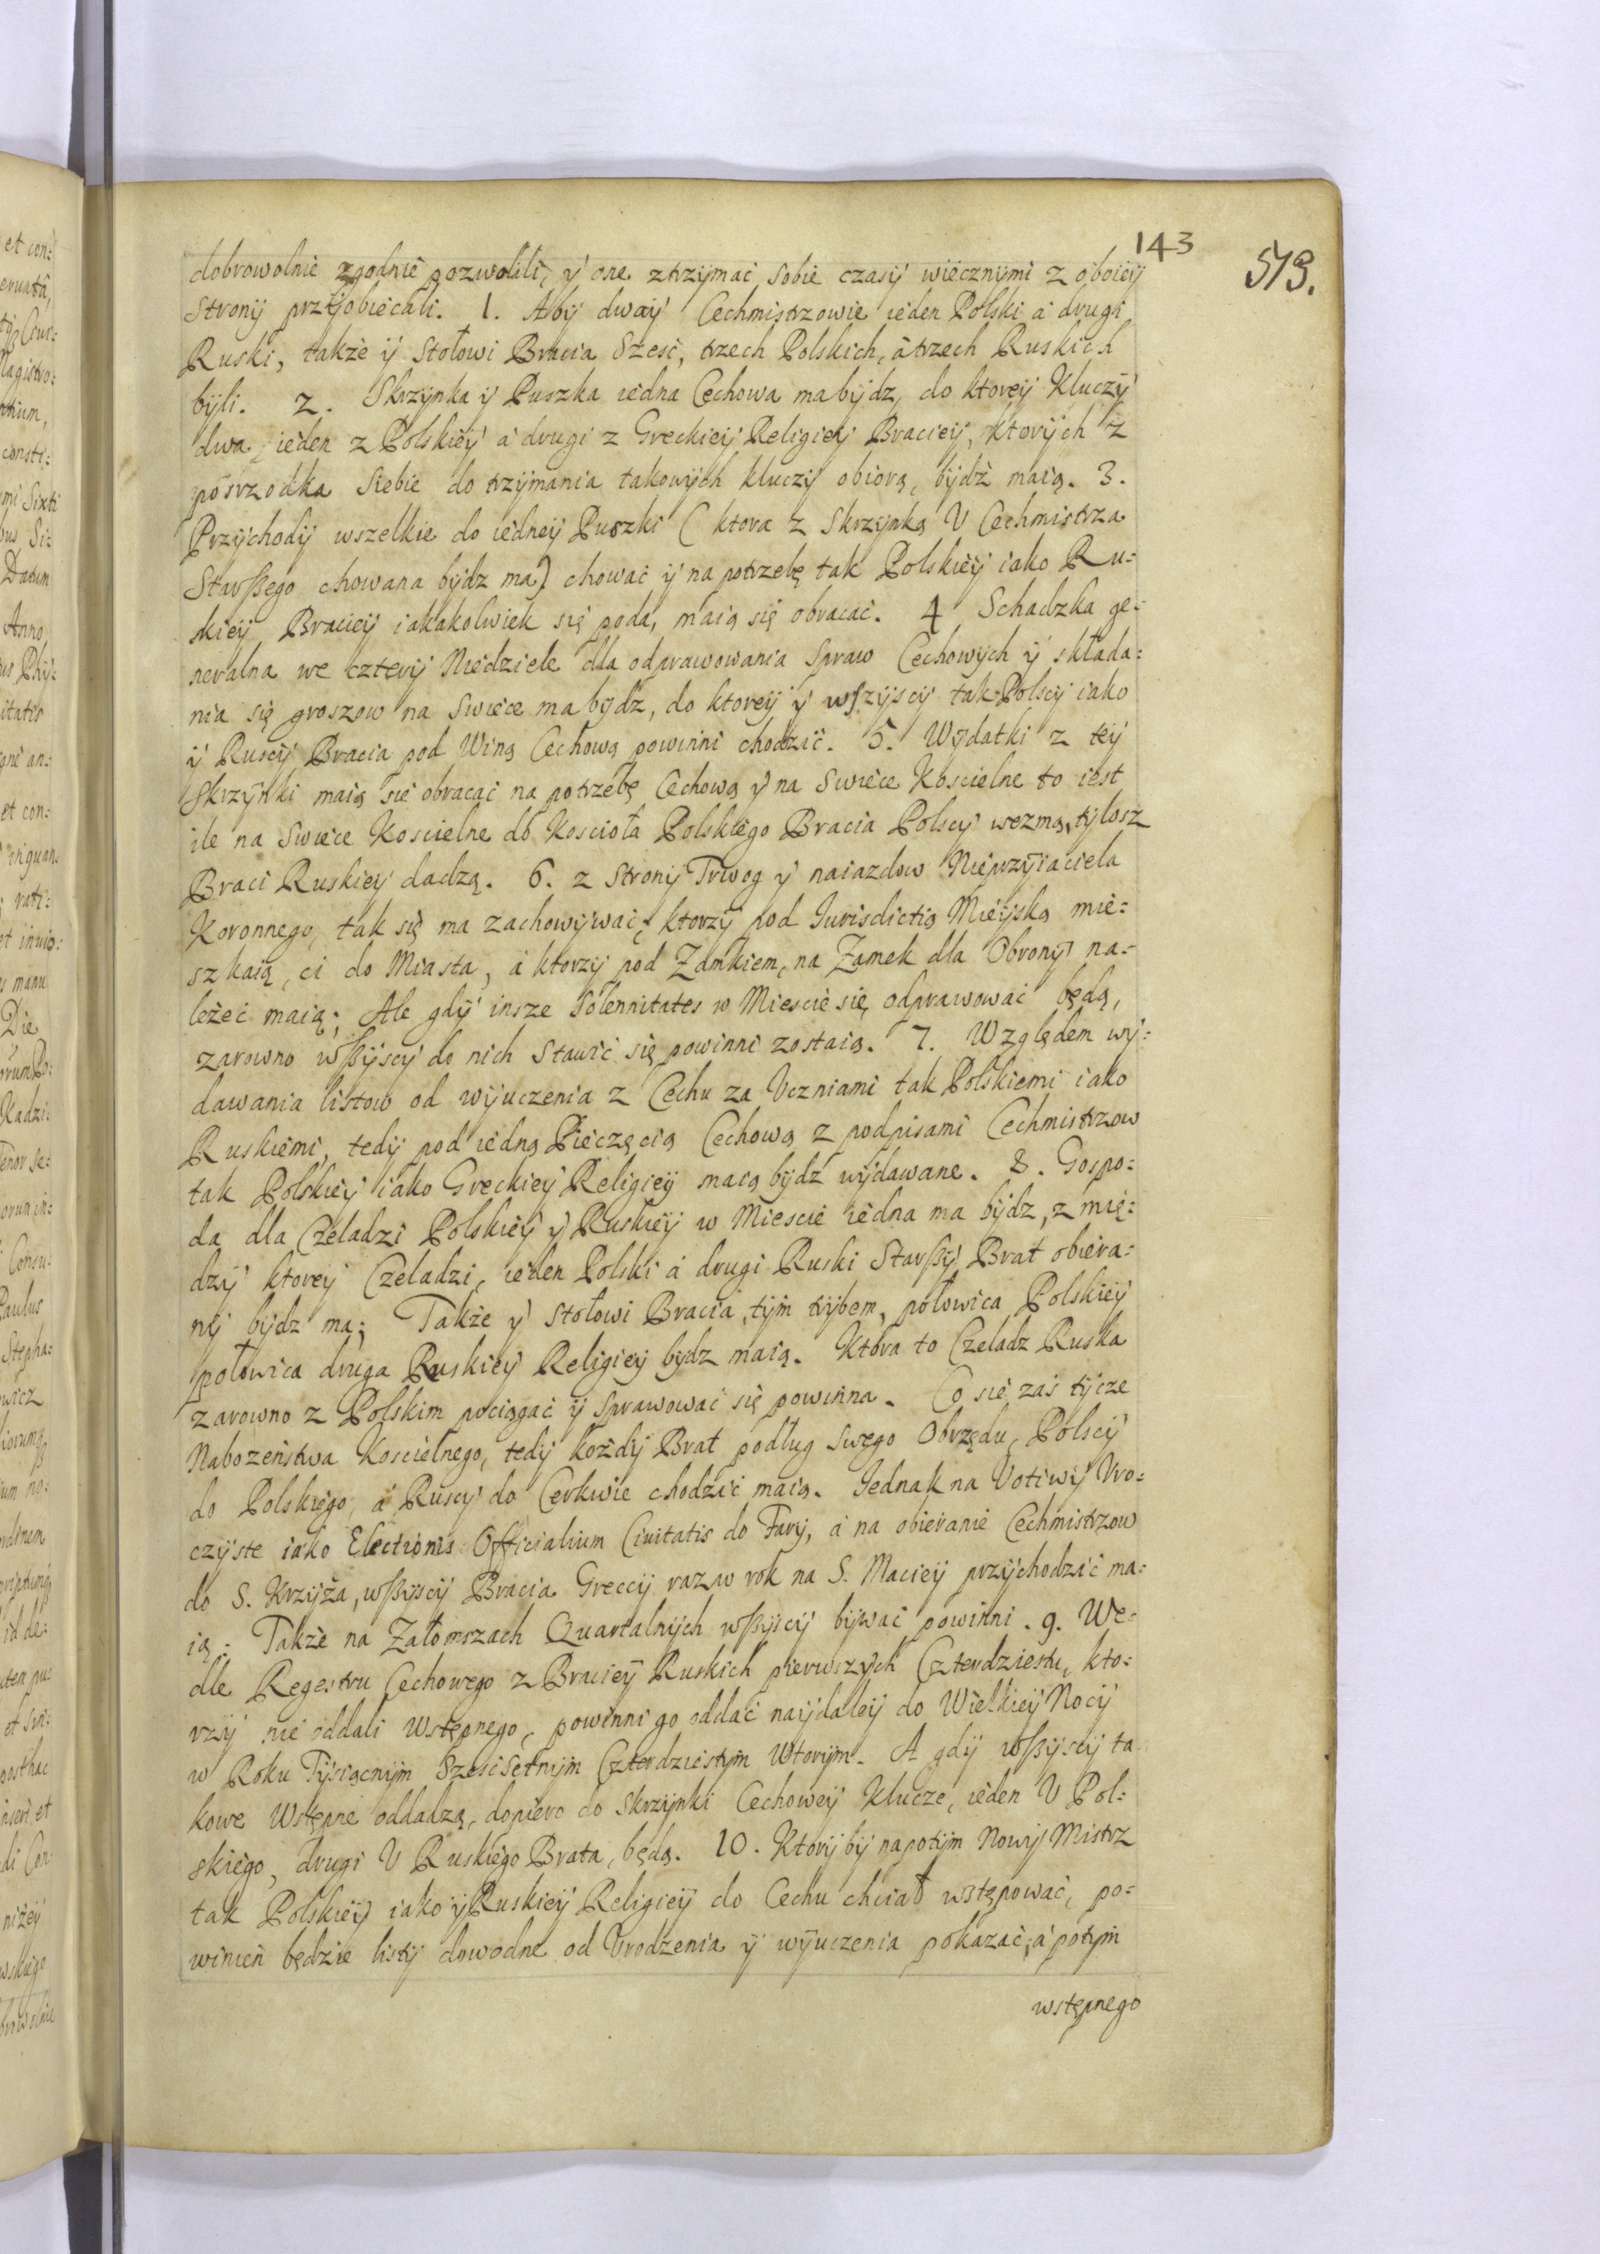 143
513.
dobrowolnie zgodnie pozwolili, ÿ one ztrzÿmać sobie czasÿ wiecznÿmi z oboieÿ
Stronÿ przÿobiecali. 1. Abÿ dwaÿ Cechmistrzowie ieden Polski a drugi
Ruski, także ÿ Stołowi Bracia Sześć, trzech Polskich, a trzech Ruskich
bÿli. 2. Skrzÿnka ÿ Puszka iedna Cechowa ma bÿdz, do ktoreÿ Kluczÿ
dwa, ieden z Polskieÿ a drugi z Greckieÿ Religieÿ Bracieÿ, ktorÿch z
posrzodka Siebie do trzÿmania takowÿch kluczÿ obiorą, bÿdź maią. 3.
Przÿchodÿ wszelkie do iedneÿ Puszki (ktora z Skrzÿnką U Cechmistrza
Starßego chowana bÿdz ma) chować ÿ na potrzebę tak Polskieÿ iako Ru-
skieÿ Bracieÿ iakakolwiek się poda, maią się obracać. 4 Schadzka ge-
neralna we czterÿ Niedziele dla odprawowania Spraw Cechowÿch ÿ składa-
nia się groszow na Swiece ma bÿdz, do ktoreÿ ÿ wszÿscÿ tak Polscÿ iako
ÿ Ruscÿ Bracia pod Winą Cechową powinni chodzić. 5. Wÿdatki z teÿ
Skrzÿnki maią się obracać na potrzebę Cechową ÿ na Swiece Koscielne to iest
ile na Swiece Koscielne do Koscioła Polskiego Bracia Polscÿ wezmą, tÿlosz
Braci Ruskieÿ dadzą. 6. z Stronÿ Trwog ÿ naiazdow Nieprzÿiaciela
Koronnego, tak się ma zachowÿwać, ktorzÿ pod Iurisdictią Mieÿską mie-
szkaią, ci do Miasta, a ktorzÿ pod Zamkiem, na Zamek dla Obronÿ na-
leżeć maią; Ale gdÿ insze Solennitates w Miescie się odprawować będą,
zarowno wßÿscÿ do nich Stawić się powinni zostaią. 7. Względem wÿ-
dawania listow od wÿuczenia z Cechu za Uczniami tak Polskiemi iako
Ruskiemi, tedÿ pod iedną Pieczęcią Cechową z podpisami Cechmistrzow
tak Polskieÿ iako Greckieÿ Religieÿ maią bÿdź wÿdawane. 8. Gospo-
da dla Czeladzi Polskieÿ ÿ Ruskieÿ w Miescie iedna ma bÿdz, z mię-
dzÿ ktoreÿ Czeladzi, ieden Polski a drugi Ruski Starßÿ Brat obiera-
nÿ bÿdz ma; Także ÿ Stołowi Bracia, tÿm trÿbem, połowica Polskieÿ
połowica druga Ruskieÿ Religieÿ bÿdz maią. Ktora to Czeladz Ruska
zarowno z Polskim pociągać ÿ Sprawować się powinna. Co się zaś tÿcze
Nabożeństwa Koscielnego, tedÿ każdÿ Brat podług swego Obrzędu, Polscÿ
do Polskiego, a Ruscÿ do Cerkwie chodzić maią. Iednak na Votiwÿ Uro-
czÿste iako Electionis Officialium Civitatis do Farÿ, a na obieranie Cechmistrzow
do S. Krzÿża, wßÿscÿ Bracia Greccÿ raz w rok na S. Macieÿ przÿchodzić ma-
ią. Także na Załomszach Quartalnÿch wßÿscÿ bÿwać powinni. 9. We-
dle Regestru Cechowego z Bracieÿ Ruskich pierwszÿch Czterdziestu, kto-
rzÿ nie oddali Wstępnego, powinni go oddać naÿdaleÿ do Wielkieÿ Nocÿ
w Roku Tÿsiącnÿm Szescsetnÿm Czterdziestÿm Wtorÿm. A gdÿ wßÿscÿ ta
kowe Wstępne oddadzą, dopiero do Skrzÿnki Cechoweÿ Klucze, ieden U Pol-
skiego, drugi U Ruskiego Brata, będą. 10. Ktorÿbÿ napotÿm Nowÿ Mistrz
tak Polskieÿ iako ÿ Ruskieÿ Religieÿ do Cechu chciał wstępować, po-
winien będzie listÿ dowodne od Urodzenia ÿ wÿuczenia pokazać, a potÿm
wstępnego